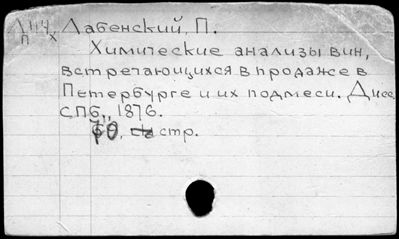 Л114 Лабенский, П.
П х
Химические анализы вин,
встречающихся в продаже в
Петербурге и их подмеси. Дисс.
СПб., 1876.
стр.